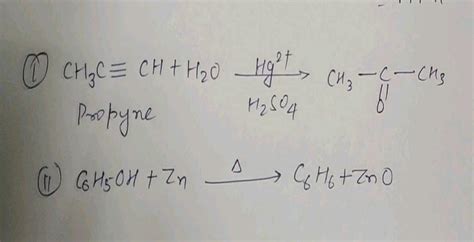 (I) CH₃C≡CH + H₂O —Hg²⁺/H₂SO₄→ CH₃—C(=O)—CH₃
Propyne
(II) C₆H₅OH + Zn —Δ→ C₆H₆ + ZnO